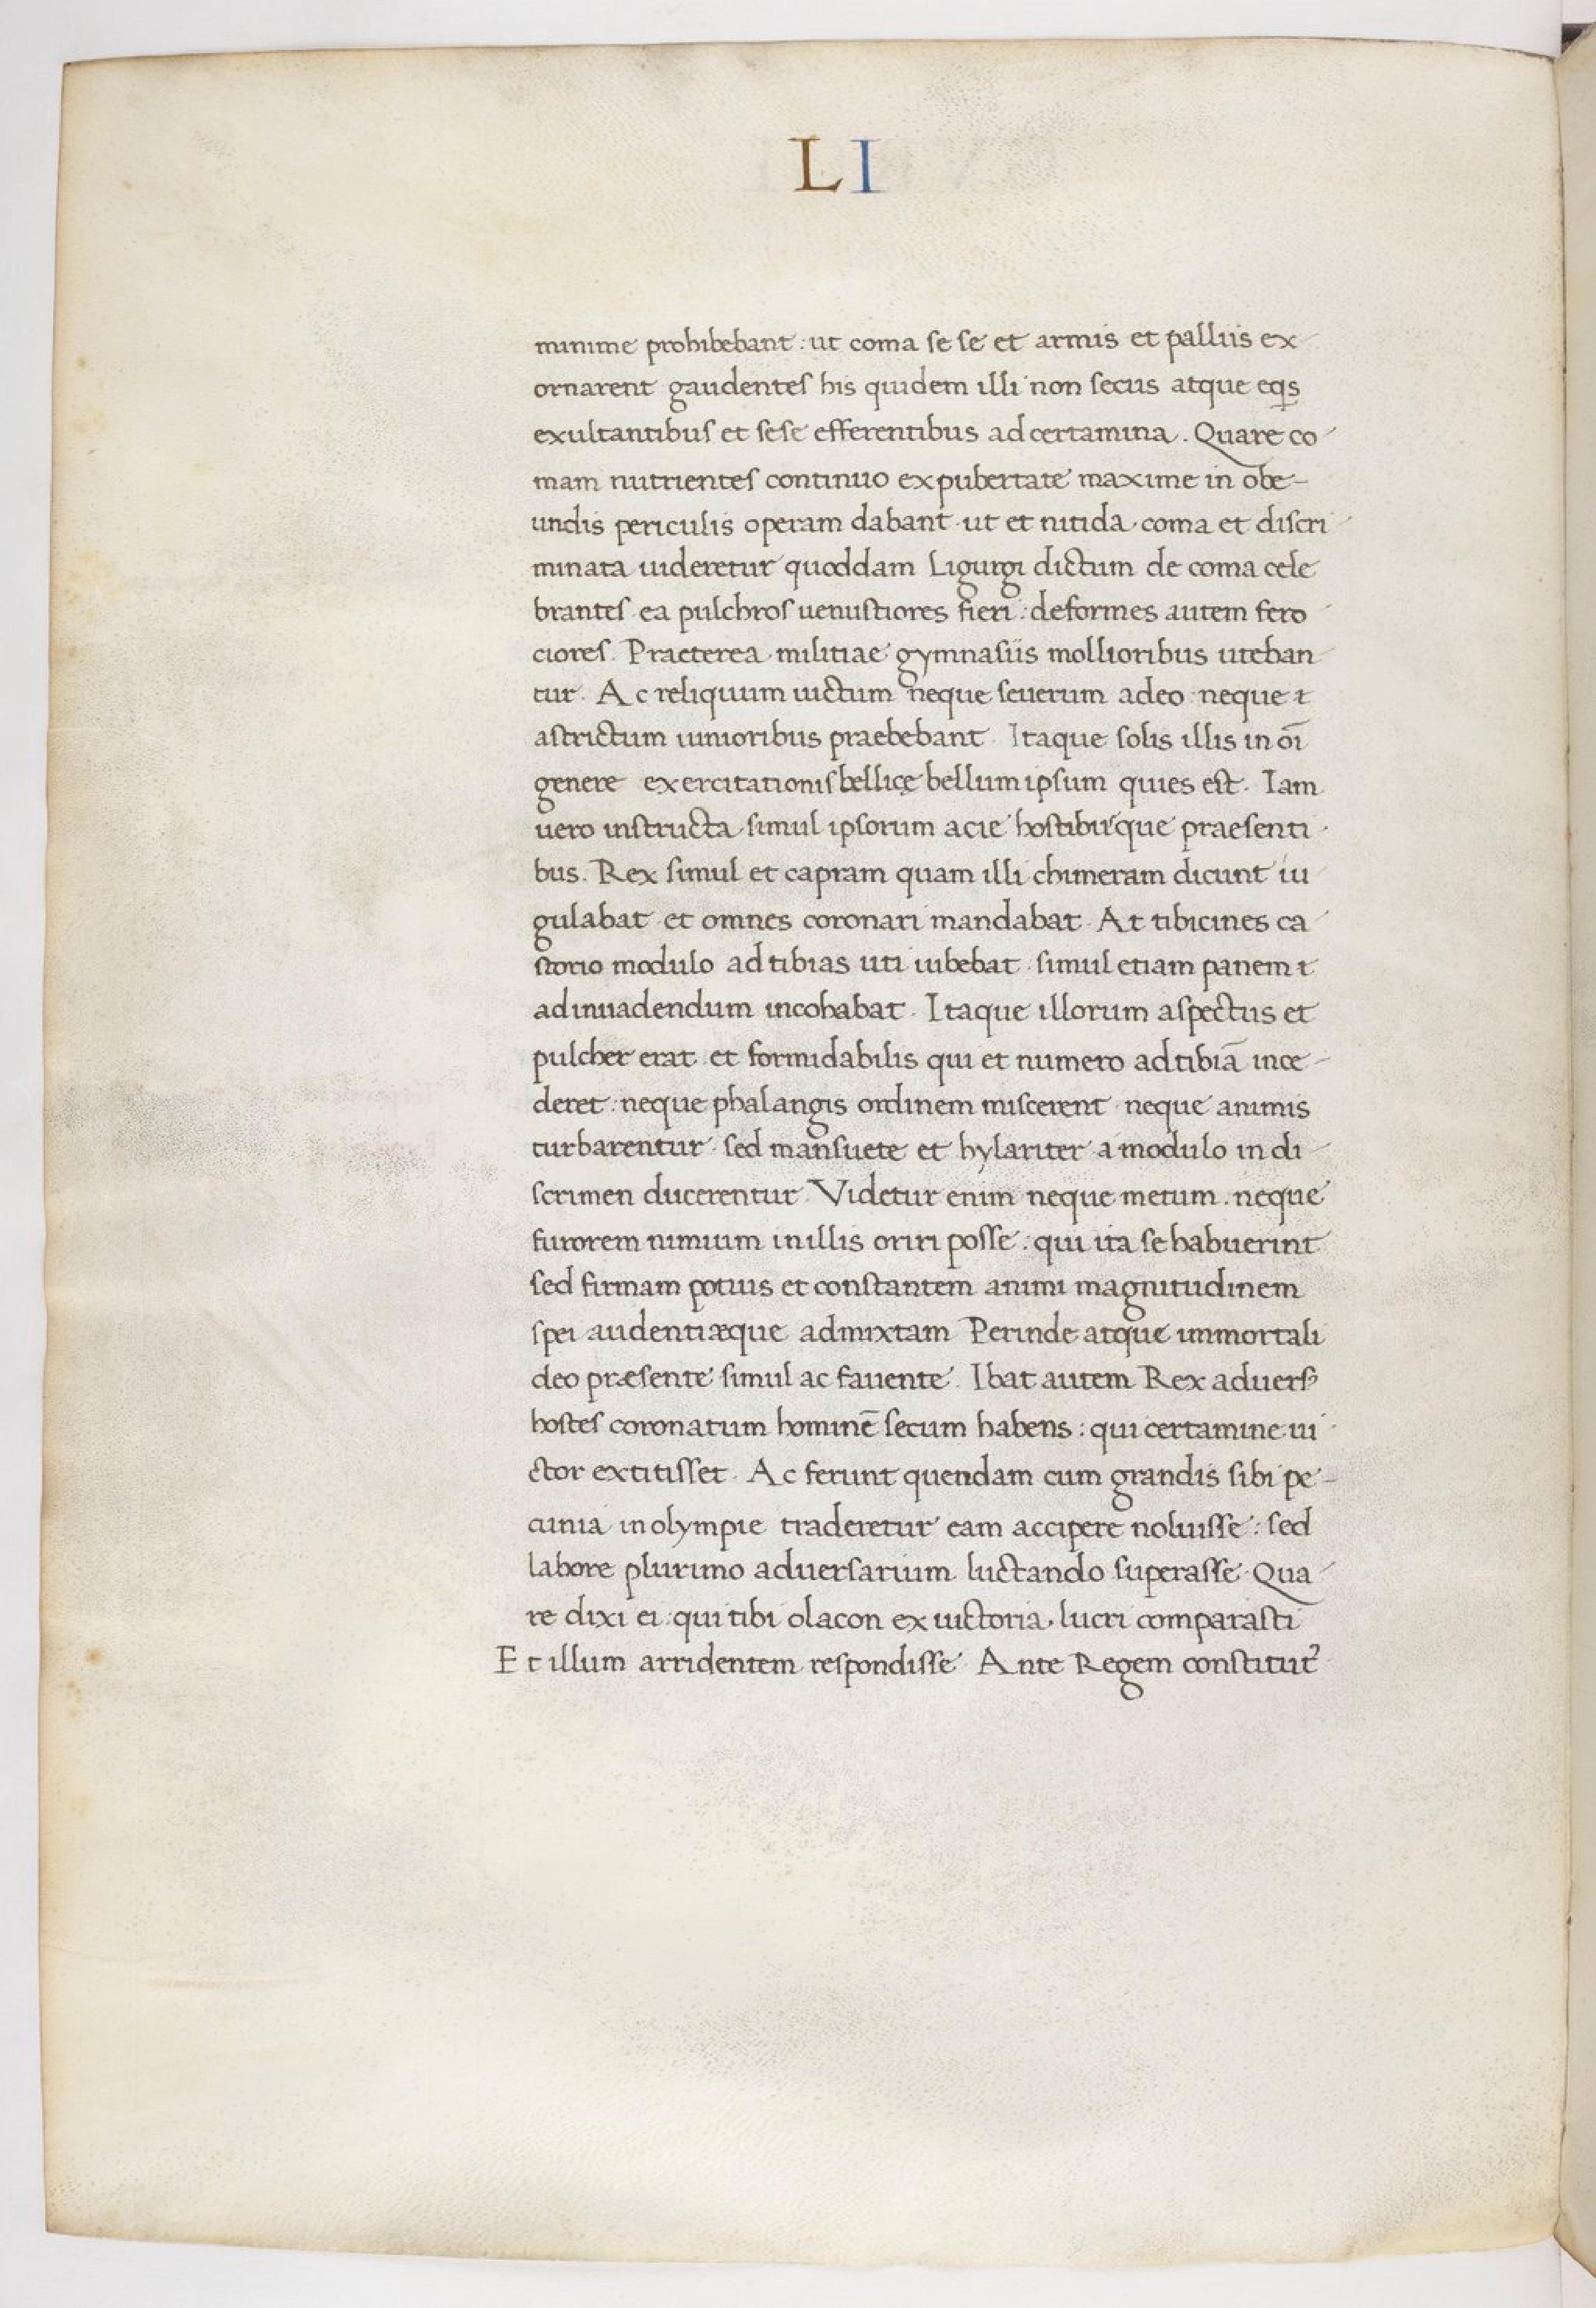 LI
minime prohibebant : ut coma se se et armis et palliis ex-
ornarent gaudentes his quidem illi non secus atque eqis
exultantibus et sese efferentibus ad certamina . Quare co-
mam nutrientes continuo ex pubertate maxime in obe-
undis periculis operam dabant · ut et nitida · coma et discri-
minata uideretur quoddam Ligurgi dictum de coma cele-
brantes · ea pulchros uenustiores fieri : deformes autem fero-
ciores . Praeterea militiae gymnasiis mollioribus uteban-
tur . Ac reliquum uictum neque seuerum adeo · neque &
astrictum iunioribus praebebant . Itaque solis illis in oī
genere exercitationis bellicę bellum ipsum quies est . Iam
uero instructa simul ipsorum acie hostibusque praesenti-
bus . Rex simul et capram quam illi chimeram dicunt iu-
gulabat · et omnes coronari mandabat . At tibicines ca-
storio modulo ad tibias uti iubebat · simul etiam panem &
ad inuadendum incohabat . Itaque illorum aspectus et
pulcher erat et formidabilis qui et numero ad tibiā ince-
deret : neque phalangis ordinem miscerent · neque animis
turbarentur · sed mansuete et hylariter a modulo in di-
scrimen ducerentur . Videtur enim neque metum . neque
furorem nimium in illis oriri posse : qui ita se habuerint
sed firmam potius et constantem animi magnitudinem
spei audentiæque admixtam Perinde atque immortali
deo præsente simul ac fauente . Ibat autem Rex aduersꝰ
hostes coronatum hominē secum habens : qui certamine ui-
ctor extitisset . Ac ferunt quendam cum grandis sibi pe-
cunia in olympie traderetur eam accipere noluisse : sed
labore plurimo aduersarium luctando superasse . Qua-
re dixi ei : qui tibi olacon ex uictoria lucri comparasti
Et illum arridentem respondisse . Ante Regem constitutꝰ